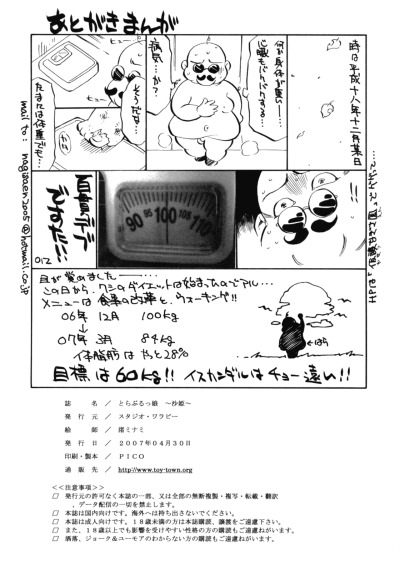 あとがきまんが
時は平成十八年十二月某日
何か身体が重い…
心臓もバクバクする…
病気…か？
ヒュー
ヒュー
そうだな…
たまには体重でも…
百貫デブ
ですた!!
90 95 100 110
012
mail to: naganez2005@hotmail.co.jp
目が覚めました――…
この日から、ワシのダイエットは始まったのでアル…
メニューは食事の改革と、ウォーキング!!
06年 12月 100kg
↓
07年 3月 84kg
体脂肪はやっと28%
←はら
目標は60kg!! イスカンダルはチョー遠い!!
誌　名　／　とらぶるっ娘　～沙姫～
発 行 元　／　スタジオ・ワラビー
絵　師　／　渚ミナミ
発 行 日　／　２００７年０４月３０日
印刷・製本　／　ＰＩＣＯ
通 販 先　／　http://www.toy-town.org
<<注意事項>>
□ 発行元の許可なく本誌の一部、又は全部の無断複製・複写・転載・翻訳
、データ配信の一切を禁止します。
□ 本誌は国内向けです。海外へは持ち出さないでください。
□ 本誌は成人向けです。１８歳未満の方は本誌購読、譲渡をご遠慮下さい。
□ また、１８歳以上でも影響を受けやすい性格の方の購読もご遠慮ねがいます。
□ 洒落、ジョーク＆ユーモアのわからない方の購読もご遠慮ねがいます。